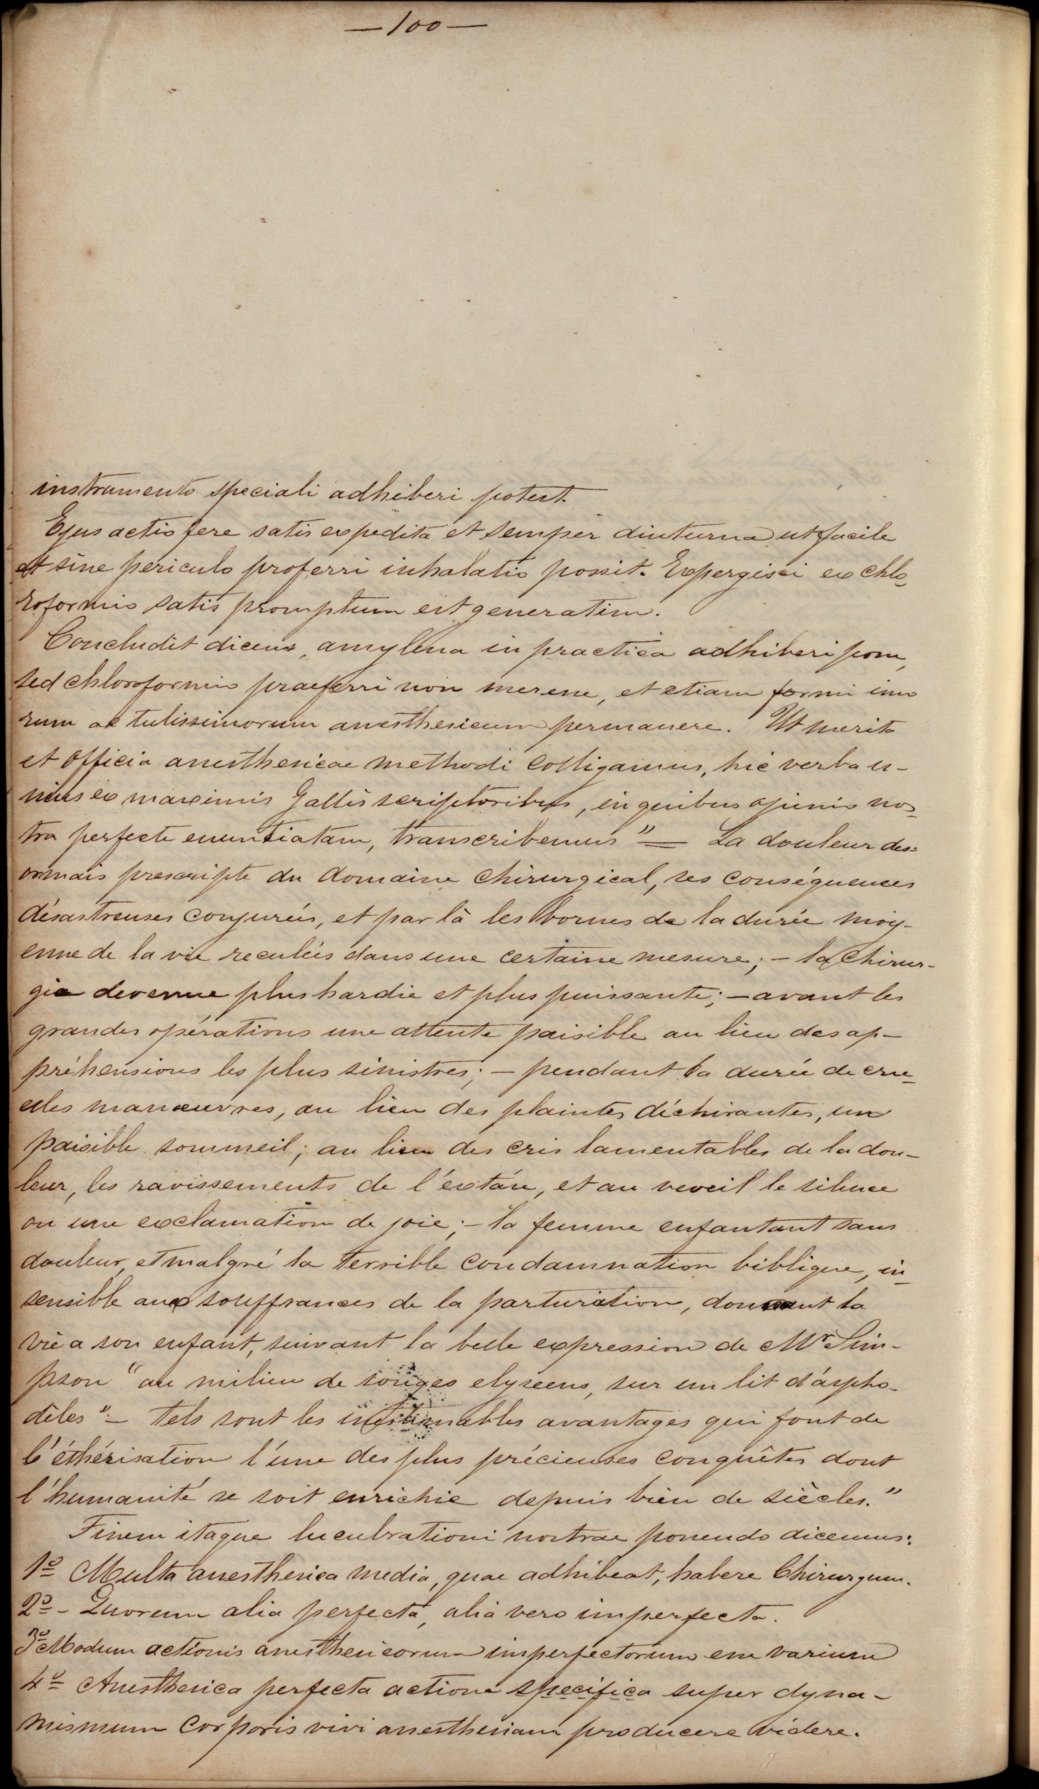 —100—
instrumento speciali adhiberi potest.
Ejus actio fere satis expedita et semper diuturna ut facile
et sine periculo proferri inhalatio possit. Expergisci ex chlo-
roformio satis promptum est generatim.
Concludit dicens, amylena in practica adhiberi posse,
sed chloroformio praeferri non merere, et etiam
rum ac anesthesicum permanere. Ut merito
et officia anesthesicae methodi colligamus, hic verba u-
nius ex maximis Gallis scriptoribus, in quibus opinio nos-
tra perfecte enuntiatam, transcribemus" — La douleur des-
ormais prescripte du domaine chirurgical, ses conséquences
désastreuses conjurées, et par là les bornes de la durée moy-
enne de la vie reculées dans une certaine mesure; – la chirur-
gie devenue plus hardie et plus puissante; – avant les
grandes opérations une attente paisible au lieu des ap-
préhensions les plus sinistres; – pendant la durée de cru-
elles manœuvres, au lieu des plaintes déchirantes, un
paisible sommeil; au lieu des cris lamentables de la dou-
leur, les ravissements de l'extáse, et au reveil le silence
ou une exclamation de joie; – la femme enfantant sans
douleur, et malgré la terrible condamnation biblique, in-
sensible aux souffrances de la parturition, donnant la
vie a son enfant, suivant la belle expression de Mr Sim-
pson "au milieu de songes elyseens, sur un lit d'aspho-
dèles" – tels sont les inestimables avantages qui font de
l'éthérisation l'une des plus précieuses conquêtes dont
l'humanité se soit enrichie depuis bien de siècles."
Finem itaque lucubrationi nostrae ponendo dicemus:
1º Multa anesthesica media, quae adhibeat, habere Chirurgum.
2º – Quorum alia perfecta, alia vero imperfecta.
3º Modum actionis anesthesicorum imperfectorum esse varium
4º Anesthesica perfecta actione specifica super dyna-
mismum corporis vivi anesthesiam producere videre.